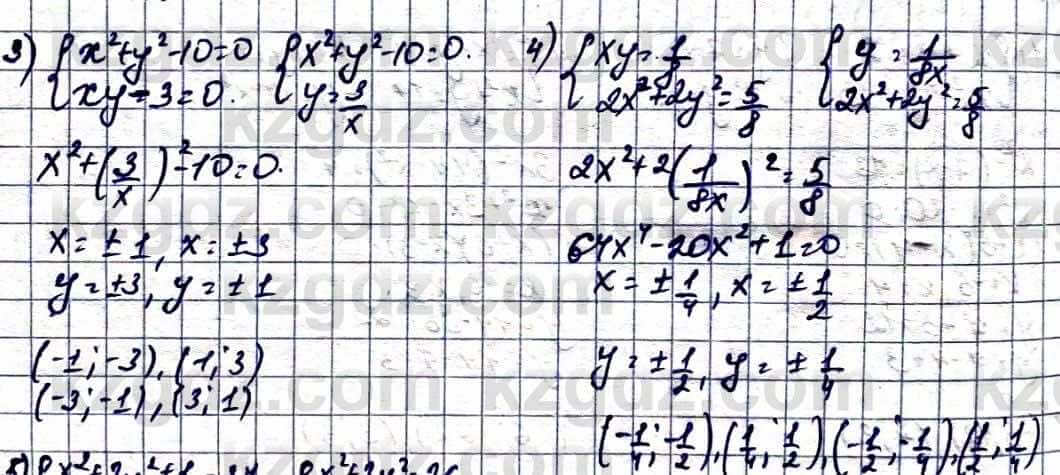 3) { x²+y²-10=0 { x²+y²-10=0.
{ xy-3=0. { y=3/x
x²+(3/x)²-10=0.
x=±1, x=±3
y=±3, y=±1
(-1;-3), (1;3)
(-3;-1), (3;1)
4) { xy=1/8 { y=1/8x
{ 2x²+2y²=5/8 { 2x²+2y²=5/8
2x²+2(1/8x)²=5/8
64x⁴-20x²+1=0
x=±1/4, x=±1/2
y=±1/2, y=±1/4
(-1/4;-1/2), (1/4;1/2), (-1/2;-1/4), (1/2;1/4)
kzgdz.com